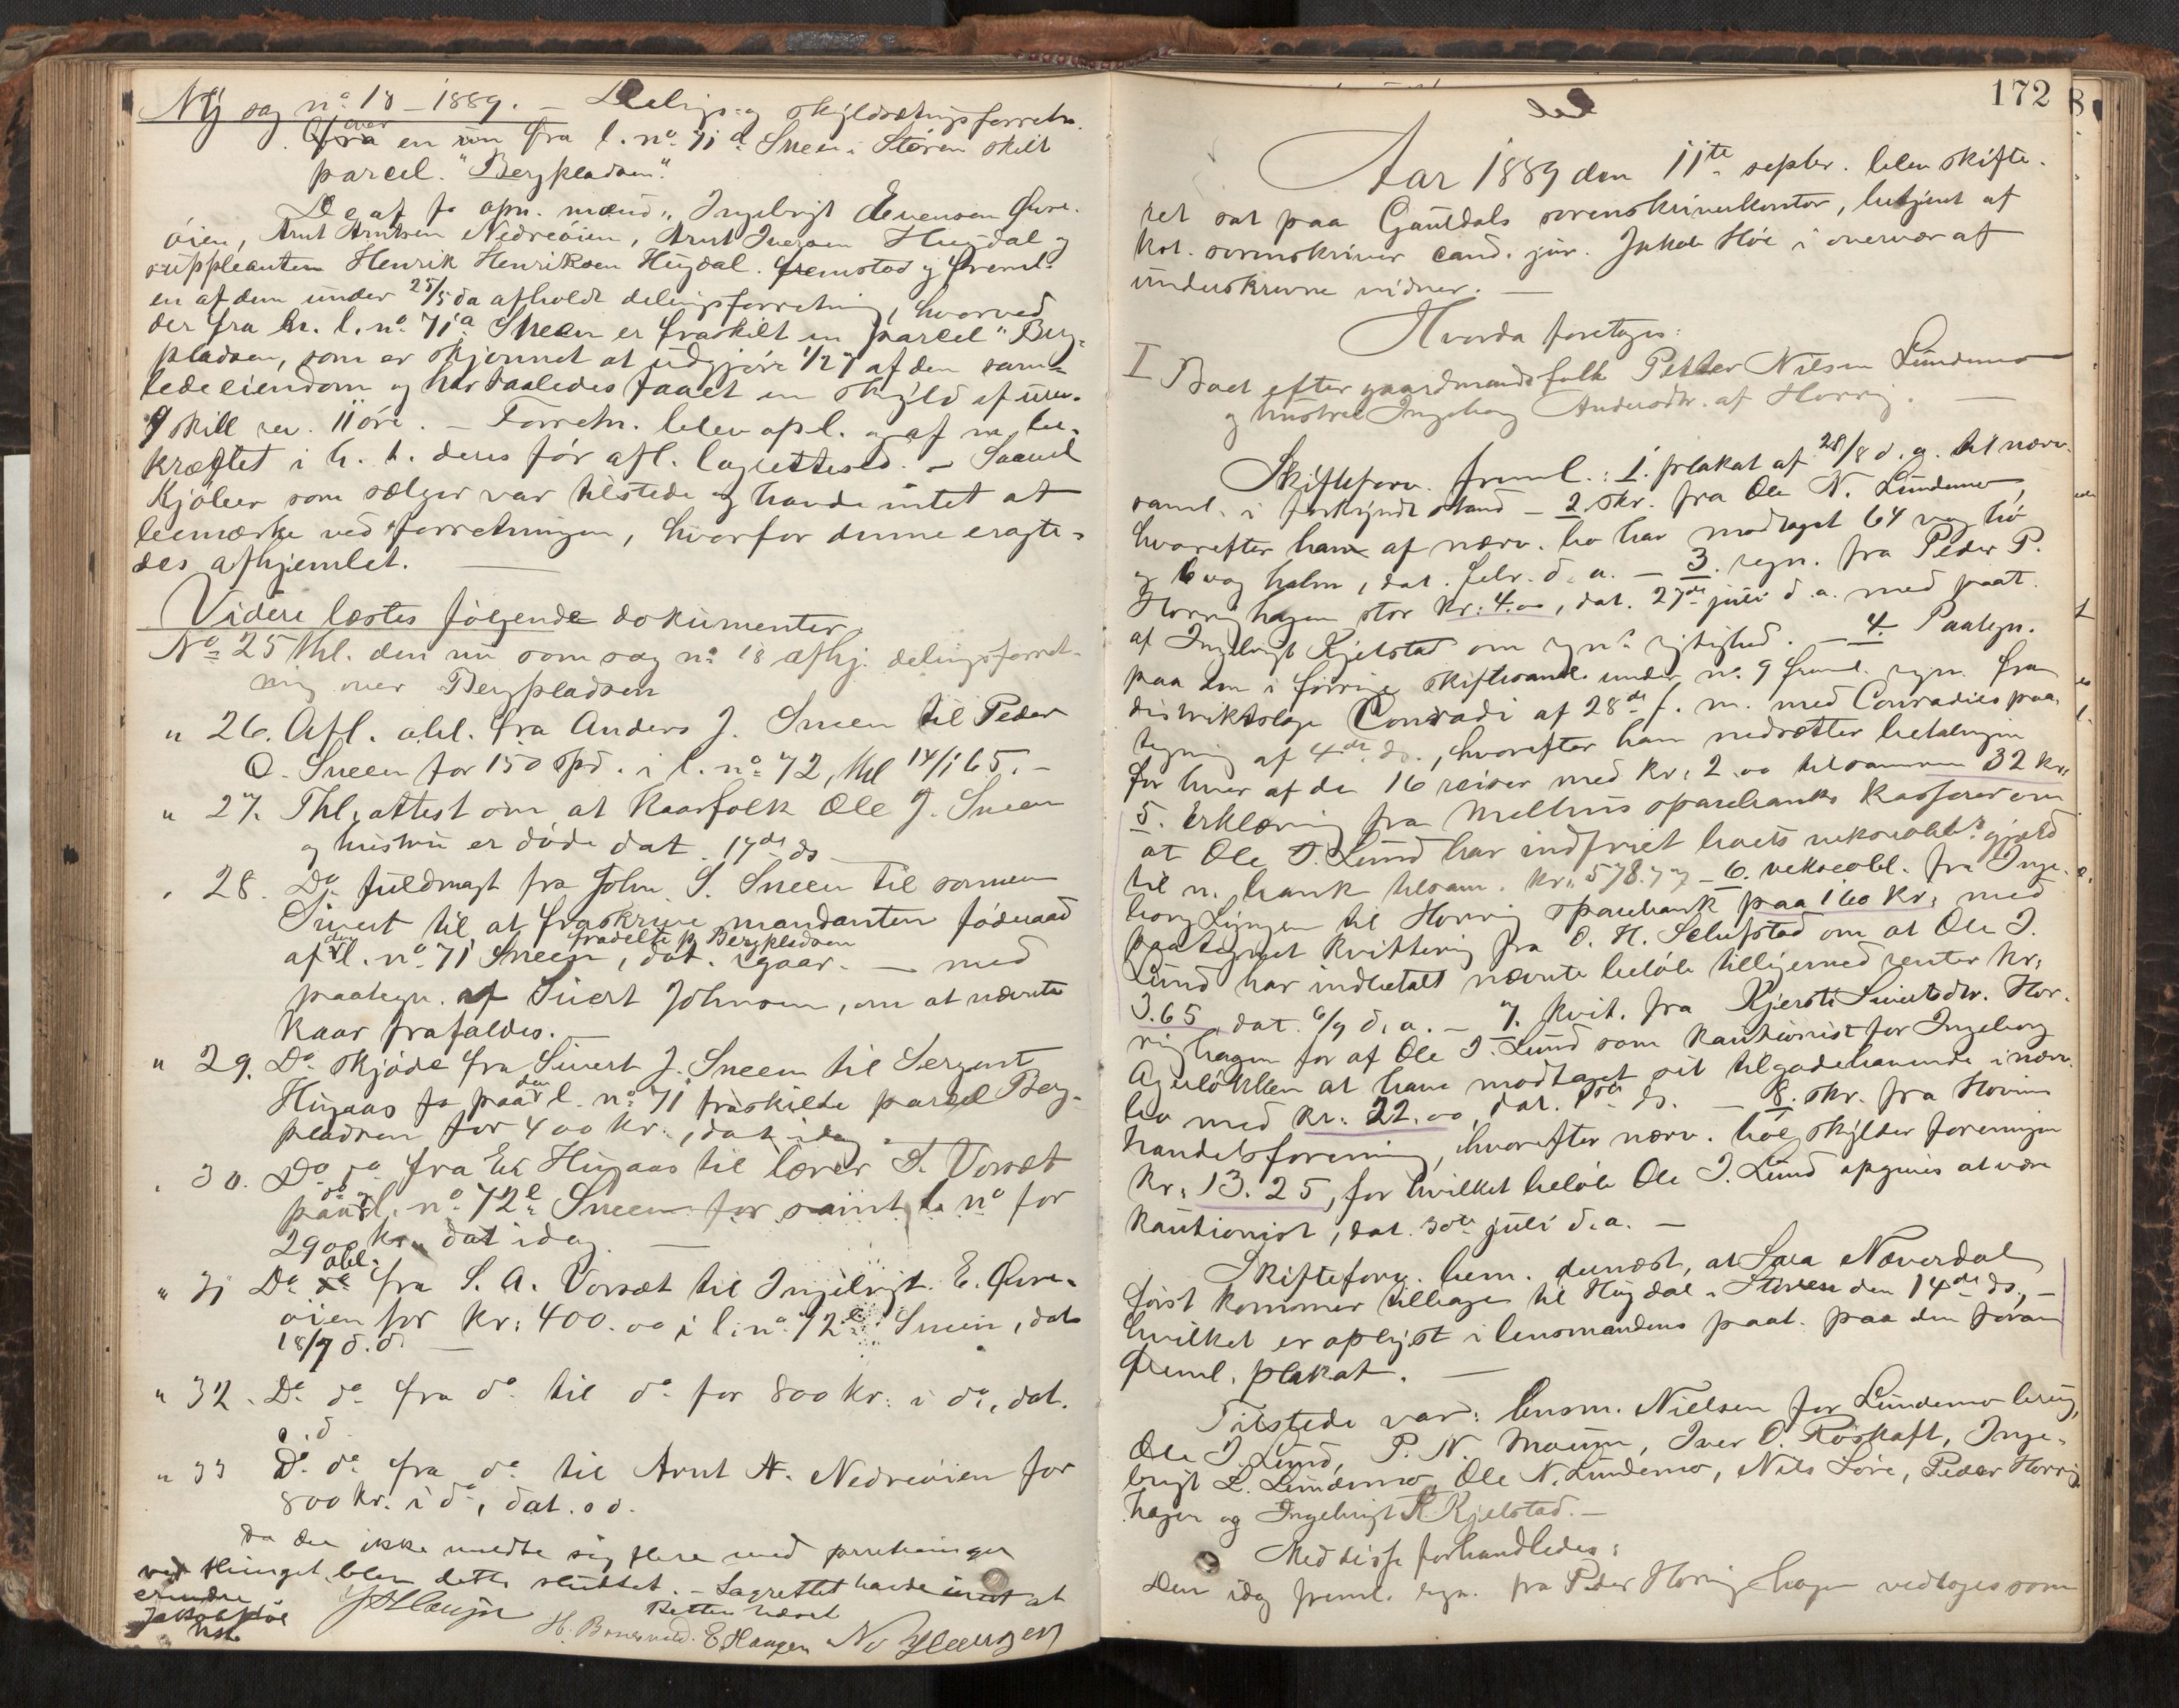 Ny sag no 18 - 1889. - Delings og skyldsætningsforretn.
over en nu fra l. no 71 a Sneen i Støren skilt
parcel. "Bergpladsen".
De af fo opn. mænd, Ingebrigt Evensen Øvre-
øien, Arnt Arntsen Nedreøien, Arnt Iversen Hugdal og
suppleanten Henrik Henriksen Hugdal. fremstod og freml.
en af dem under 25/5 da afholdt delingsforretning, hvorved
der fra br. l. no 71 a Sneen er fraskilt en parcel "Berg-
pladsen, som er skjønnet at udgjøre 1/27 af den sam-
lede eiendom og har saaledes faaet en skyld af
9 skill rev. 11 øre. - Forretn. blev opl. og af m. be-
kræftet i h. t. deres før afl. lagrettesed. -
Kjøber som sælger var tilstede og havde intet at
bemærke ved forretningen, hvorfor denne eragte-
des afhjemlet.
Videre læstes følgende dokumenter
No 25 Thl. den nu som sag no 18 afhj. delingsforret-
ning over Bergpladsen
" 26. Afl. obl. fra Anders J. Sneen til Peder
O. Sneen for 150 Spd. i l. no 72, thl 14/1 65. -
" 27. Thl. attest om at kaarfolk Ole J. Sneen
og hustru er døde dat. 17de ds
" 28. Do fuldmagt fra John S. Sneen til sønnen
Sivert til at fraskrive mandanten føderaad
af den l. no 71 Sneen fradelte p Bergpladsen, dat. igaar. - med
paategn. af Sivert Johnsen, om at nævnte
kaar frafaldes. -
" 29. Do skjøde fra Sivert J. Sneen til Sergent
Hugaas fo paa den l. no 71 fraskilte parcel Berg-
pladsen for 400 kr., dat idag -
" 30. Do do fra Er Hugaas til lærer S. Vorsæt
paa do l. no 72 e Sneen for samt l. no for
2900 kr. dat idag. -
" 31 Do obl. fra S. A. Vorsæt til Ingebrigt E. Øvre-
øien for kr: 400.00 i l. no 72 e Sneen, dat
18/7 d. a. -
" 32. Do do fra do til do for 800 kr. i do, dat.
s. d.
" 33 Do do fra do til Arnt A. Nedreøien for
800 kr. i do, dat. s d.
Da der ikke meldte sig flere med forretninger
ved thinget blev dette sluttet. - Lagrettet havde intet at
erindre. Retten hævet
Jakob Høe
H. Bonesvold. E Haugen
172
Aar 1889 den 11te septbr. blev skifte-
ret sat paa Gauldals sorenskriverkontor, betjent af
kst. sorenskriver cand. jur. Jakob Høe i overvær af
underskrevne vidner. -
Hvorda foretoges:
I Boet efter gaardmandsfolk Petter Nilsen Lundemo
og hustru Ingeborg Andersdtr. af Horrig. -
Skifteforv. freml.: 1. plakat af 28/8 d. a. til nærv.
saml. i forkyndt stand - 2. skr. fra Ole N. Lundemo,
hvorefter han af nærv. bo har modtaget 64 vog hø
og 6 vog halm, dat. febr. d. a. - 3. regn. fra Peder P.
Horrighagen stor kr: 4.00, dat. 27de juli d. a. med paat.
af Ingebrigt Kjelstad om regns rigtighed. - 4. Paategn.
paa den i forrige skiftesaml. under no 9 freml. regn. fra
distriktslæge Conradi af 28de f. m. med Conradies paa-
tegning af 4de ds., hvorefter han nedsætter betalingen
for hver af de 16 reiser med kr: 2.00 tilsammen 32 kr:
5. Erklæring fra Melhus sparebanks kasserer om
at Ole J. Lund har indfriet boets vekselobl. gjæld
til n. bank tilsam. kr: 578.77 - 6. vekselobl. fra Inge-
borg Lyngen til Horrig sparebank paa 160 kr: med
paategnet kvittering fra O. H. Selbystad om at Ole J.
Lund har indbetalt nævnte beløb tilligemed renter kr:
3.65, dat. 6/9 d. a. - 7. kvit. fra Kjersti Sivertsdtr. Hor-
righagen for af Ole J. Lund som kautionist for Ingeborg
Agerløkken at have modtaget sit tilgodehavende i nærv.
bo med kr: 22.00, dat. ds. - 8. skr. fra Hovins
handelsforening, hvorefter nærv. bo skylder foreningen
kr: 13.25, for hvilket beløb Ole J. Lund opgives at være
kautionist, dat. 30te juli d. a. -
Skifteforv. bem. dernæst, at Sara Næverdal
først kommer tilbage til Hugdal i Støren den 14de ds, -
hvilket er oplyst i lensmandens paat. paa den foran
freml. plakat. -
Tilstede var: lensm. Nielsen for Lundemo brug,
Ole J. Lund, P. N. Moum, Iver O. Røskaft, Inge-
brigt L. Lundemo, Ole N. Lundemo, Nils Løre, Peder Horrig-
hagen og Ingebrigt K. Kjelstad. -
Med disse forhandledes:
Den idag freml. regn. fra Peder Horrighagen vedtoges som